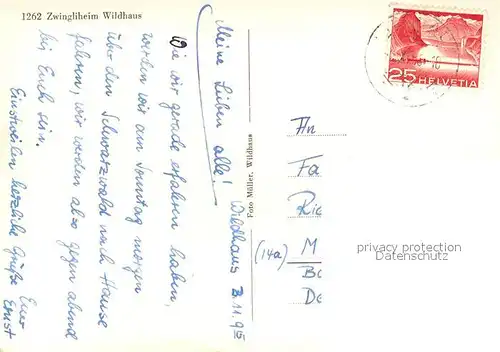 1262 Zwingliheim Wildhaus
Meine Lieben alle!
Wildhaus
Wie wir gerade erfahren haben,
werden wir am Sonntag morgen
über den Schwarzwald nach Hause
fahren, wir werden also gegen abend
bei Euch sein.
Einstweilen herzliche Grüße Euer
Ernst
Foto Müller, Wildhaus
25 HELVETIA
An
Fa
(14a) M
privacy protection
Datenschutz
De